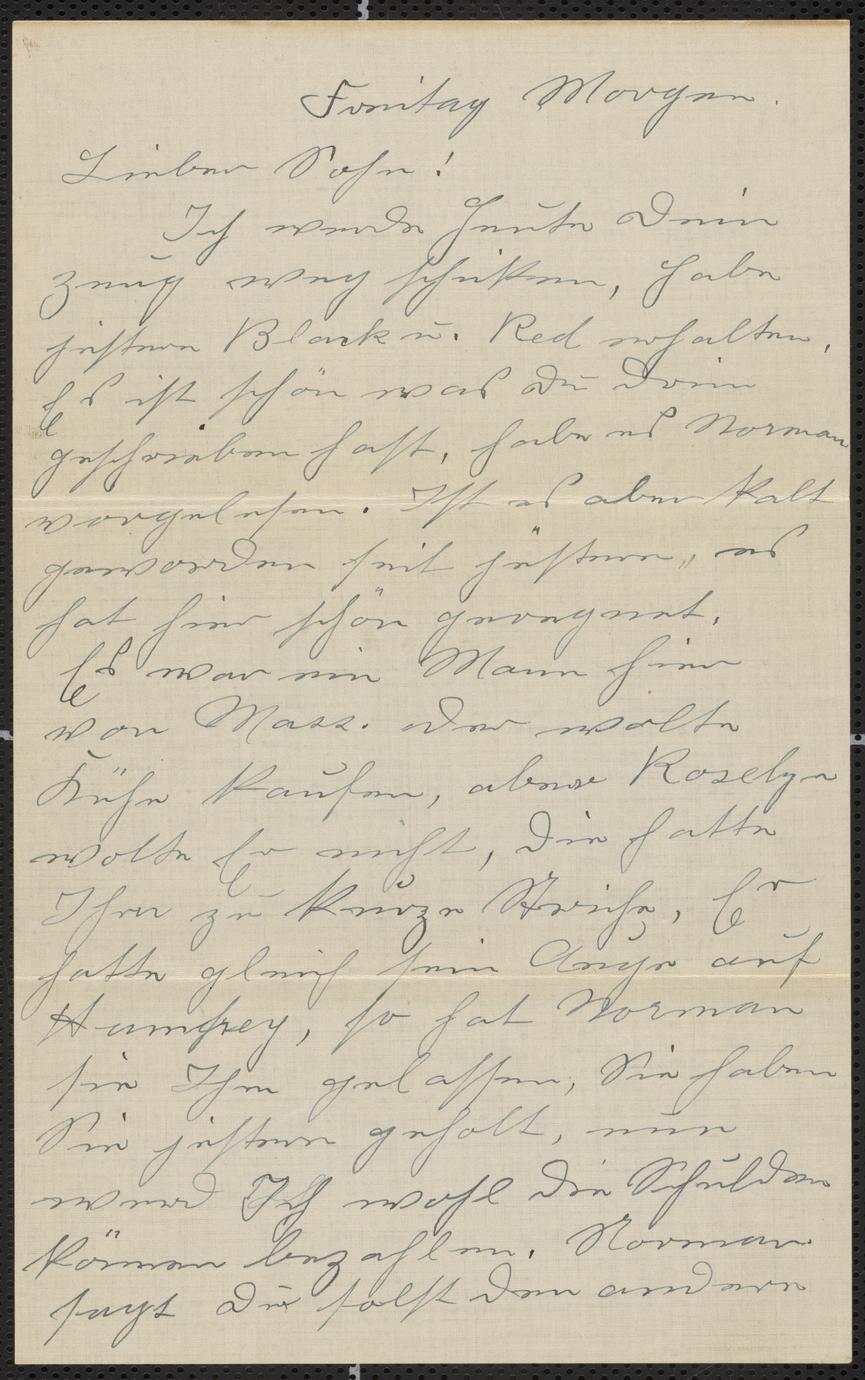 Freitag Morgen.
Lieber Sohn!
Ich werde heute dein
zeug weg schikken, habe
jestern Black u. Red erhalten,
Es ist schön was du drin
geschrieben hast, habe es Norman
vorgelesen. Ist es aber kalt
geworden seit jestern, es
hat hier schön geregnet.
Es war ein Mann hier
von Mass. der wolte
Kühe kaufen, aber Roselyn
wolte Er nicht, die hatte
Ihm zu kurze Striche, Er
hatte gleich sein Auge auf
Humfrey, so hat Norman
sie Ihm gelassen, Sie haben
Sie jestern geholt, nun
werd Ich wohl die Schulden
können bezahlen. Norman
sagt du solst den andern